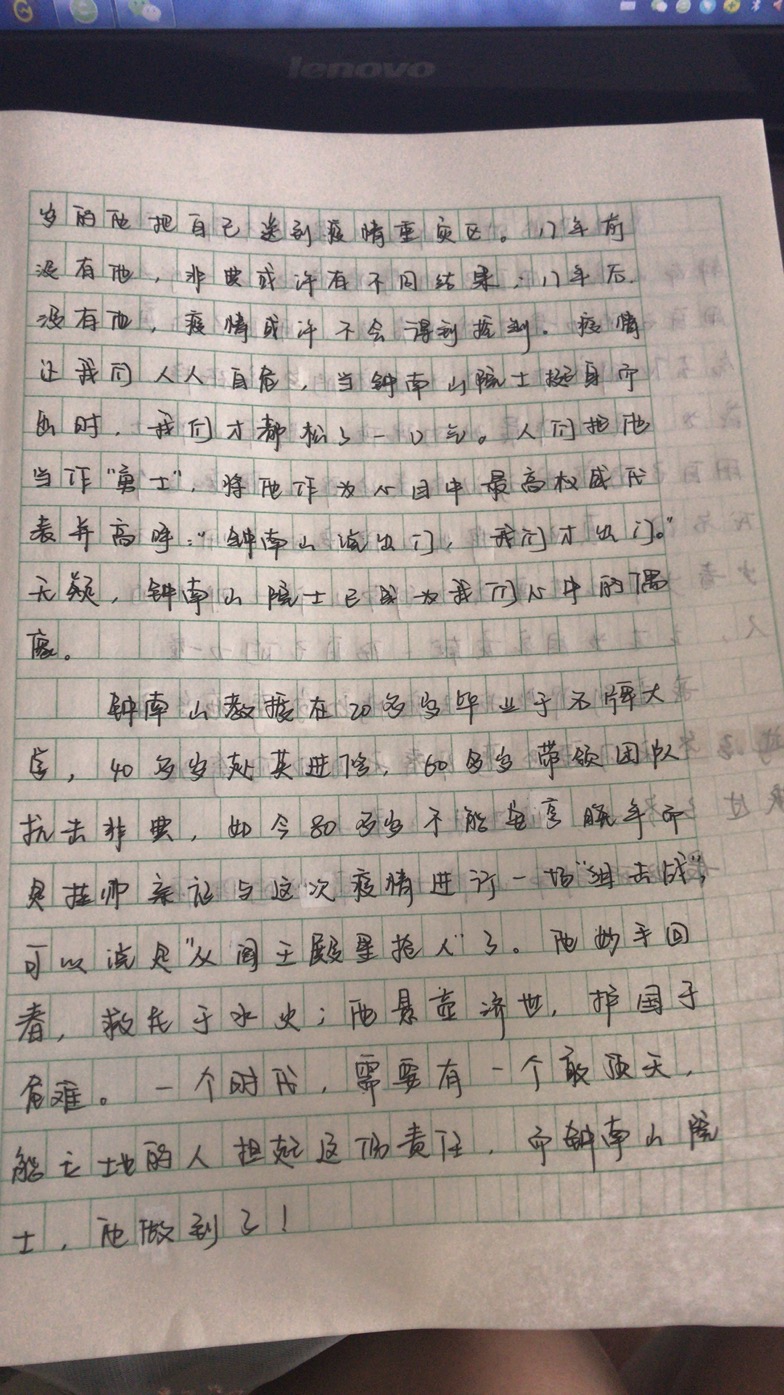 lenovo
岁的他把自己送到疫情重灾区。17年前
没有他，非典或许有不同结果；17年后
没有他，疫情或许不会得到控制。疫情
让我们人人自危，当钟南山院士挺身而
出时，我们才都松了一口气。人们把他
当作“勇士”，将他作为心目中最高权威代
表并高呼：“钟南山说出门，我们才出门。”
无疑，钟南山院士已成为我们心中的偶
像。
钟南山教授在20多岁毕业于名牌大
学，40多岁赴英进修，60多岁带领团队
抗击非典，如今80多岁不能安享晚年而
是挂帅亲征与这次疫情进行一场“狙击战”，
可以说是“从阎王殿里抢人”了。他妙手回
春，救死于水火；他悬壶济世，护国于
危难。一个时代，需要有一个敢顶天，
能立地的人担起这份责任，而钟南山院
士，他做到了！